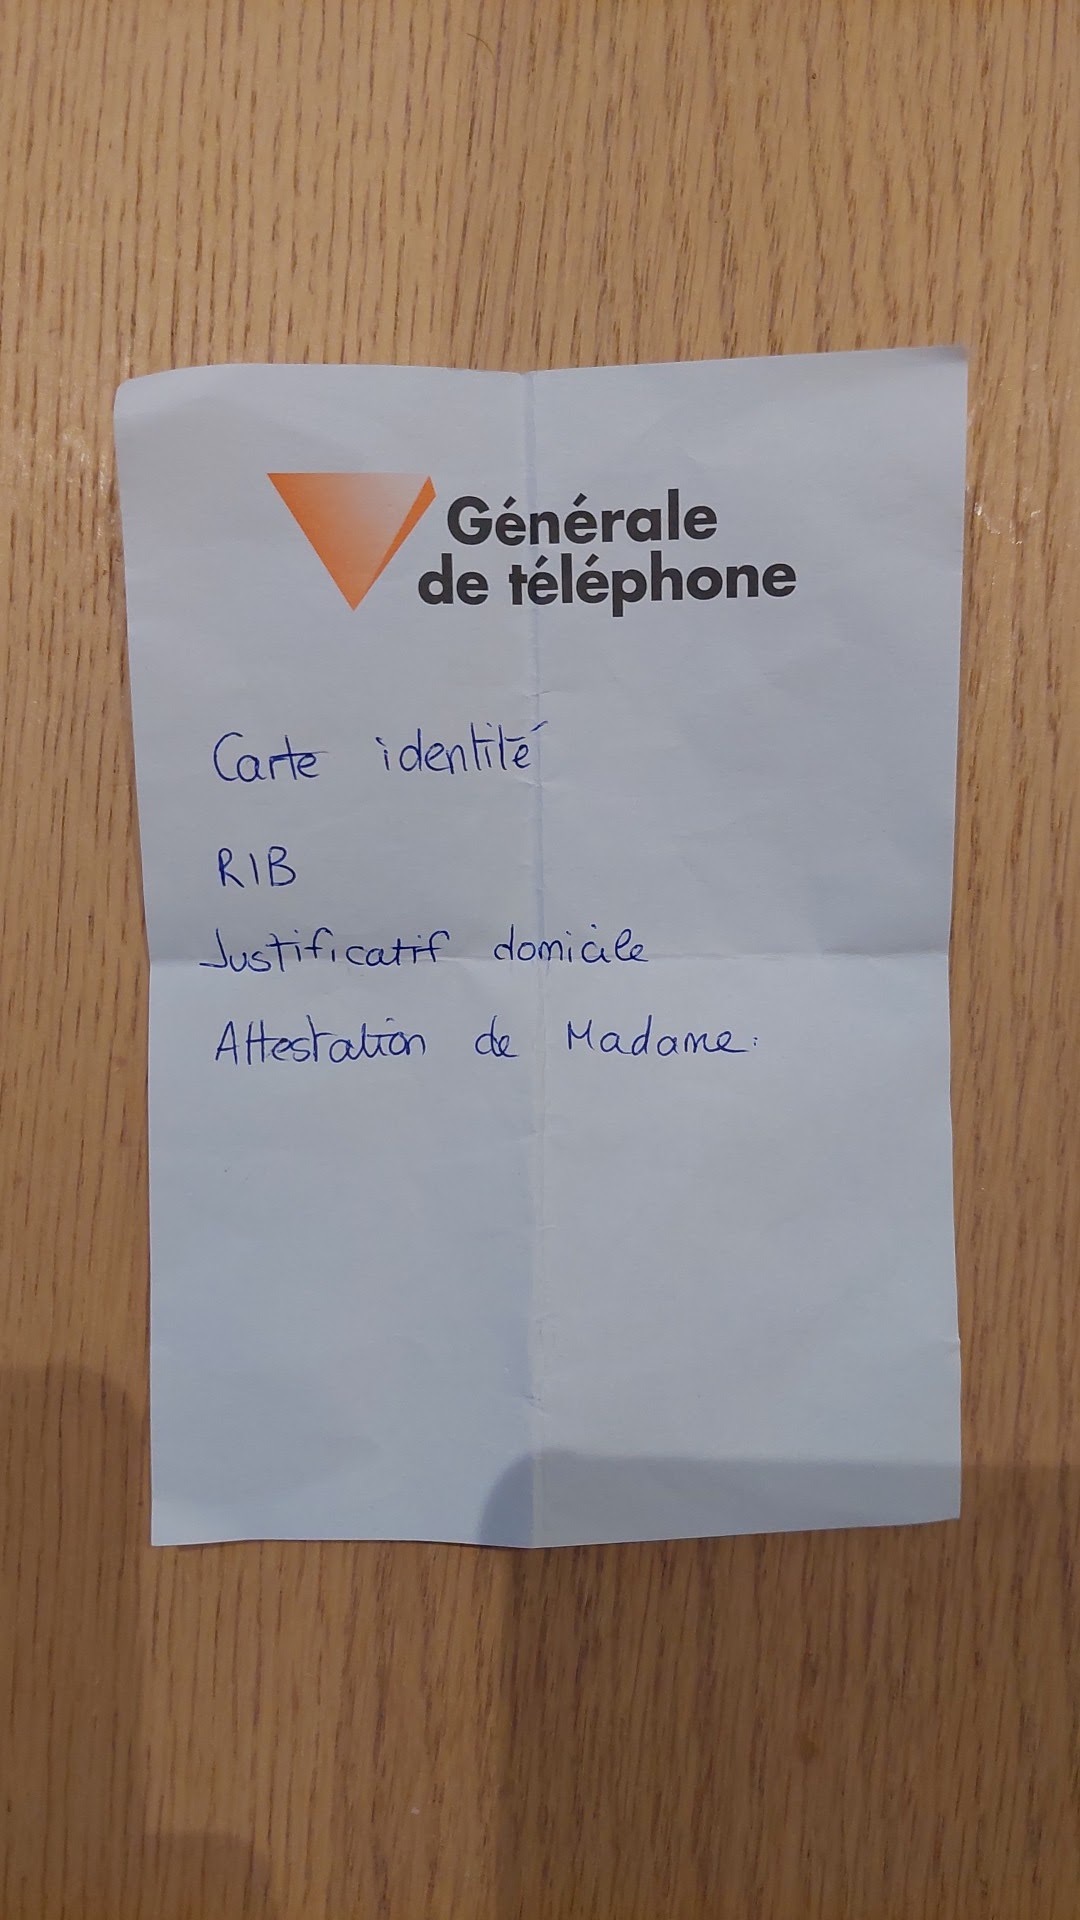 Générale
de téléphone
Carte identité
RIB
Justificatif domicile
Attestation de Madame.